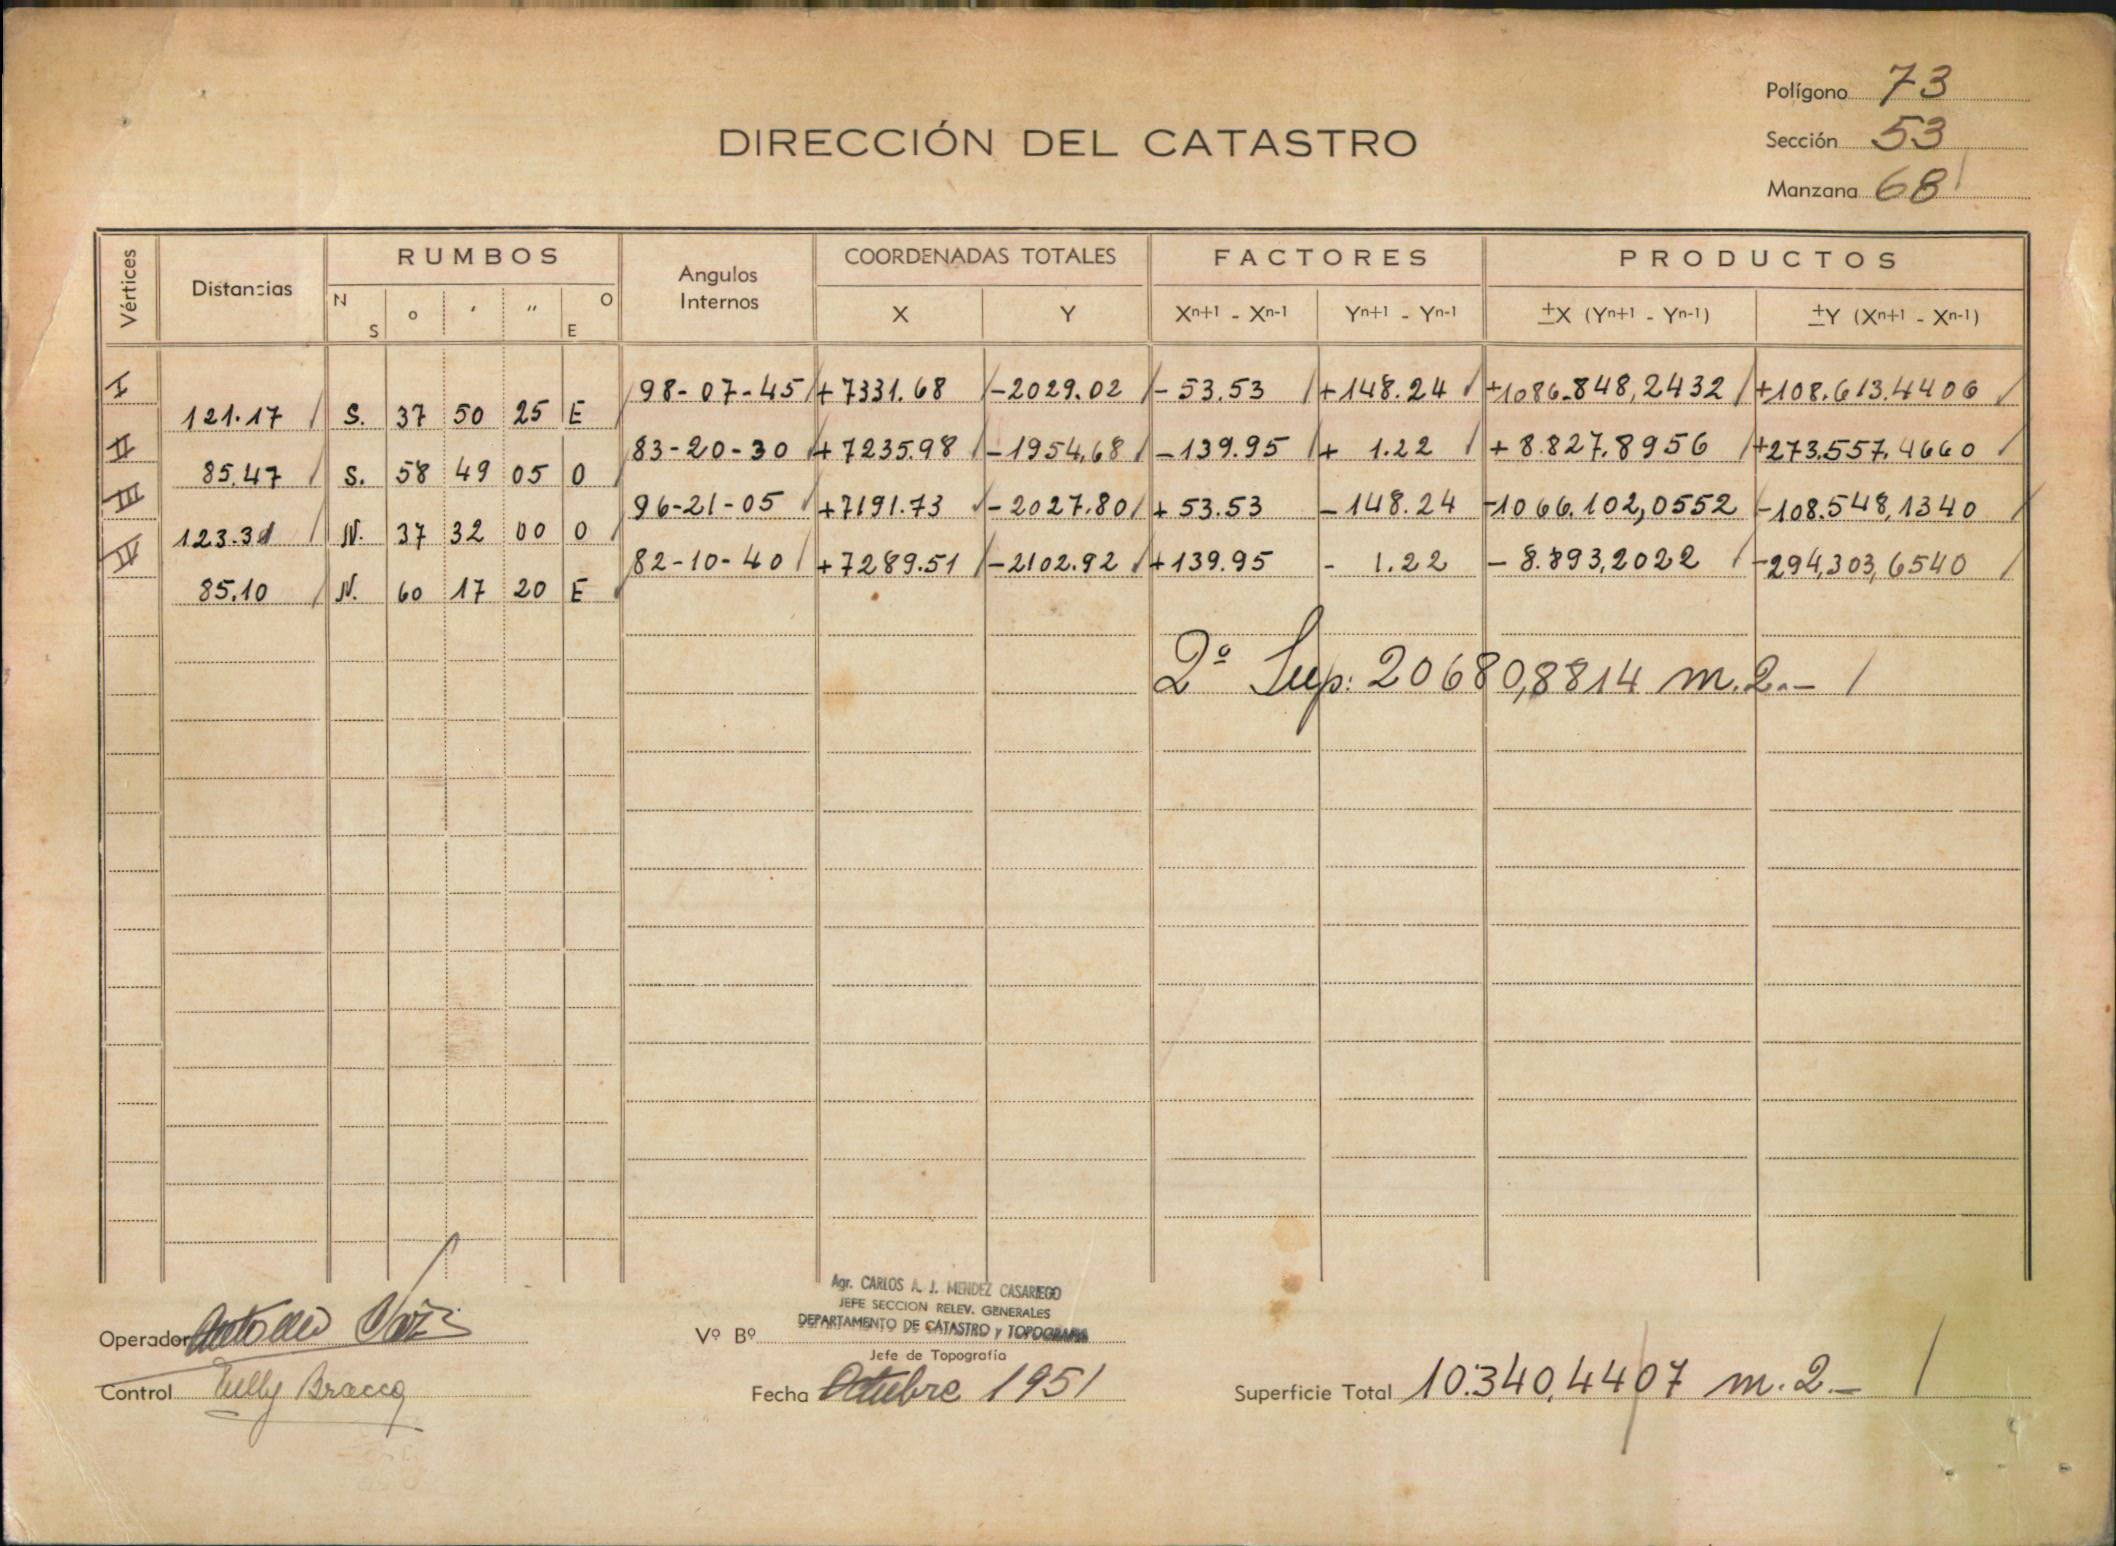 Polígono 73
DIRECCIÓN DEL CATASTRO
Sección 53
Manzana 68
Vértices Distancias RUMBOS Angulos Internos COORDENADAS TOTALES FACTORES PRODUCTOS
N S o ' '' O E X Y Xn+1 - Xn-1 Yn+1 - Yn-1 ±X (Yn+1 - Yn-1) ±Y (Xn+1 - Xn-1)
I 98-07-45 +7331.68 -2029.02 -53.53 +148.24 +1086.848,2432 +108.613.4406
121.17 S. 37 50 25 E
II 83-20-30 +7235.98 -1954.68 -139.95 + 1.22 +8.827,8956 +273.557,4660
85.47 S. 58 49 05 O
III 96-21-05 +7191.73 -2027.80 +53.53 -148.24 -1066.102,0552 -108.548,1340
123.31 N. 37 32 00 O
IV 82-10-40 +7289.51 -2102.92 +139.95 - 1.22 -8.893,2022 -294,303,6540
85.10 N. 60 17 20 E
2º Sup: 20680,8814 m.2.-
Agr. CARLOS A. J. MENDEZ CASARIEGO
JEFE SECCION RELEV. GENERALES
DEPARTAMENTO DE CATASTRO y TOPOGRAFIA
Operador Vº Bº
Jefe de Topografía
Control Bracco Fecha Octubre 1951 Superficie Total 10.340,4407 m.2.-